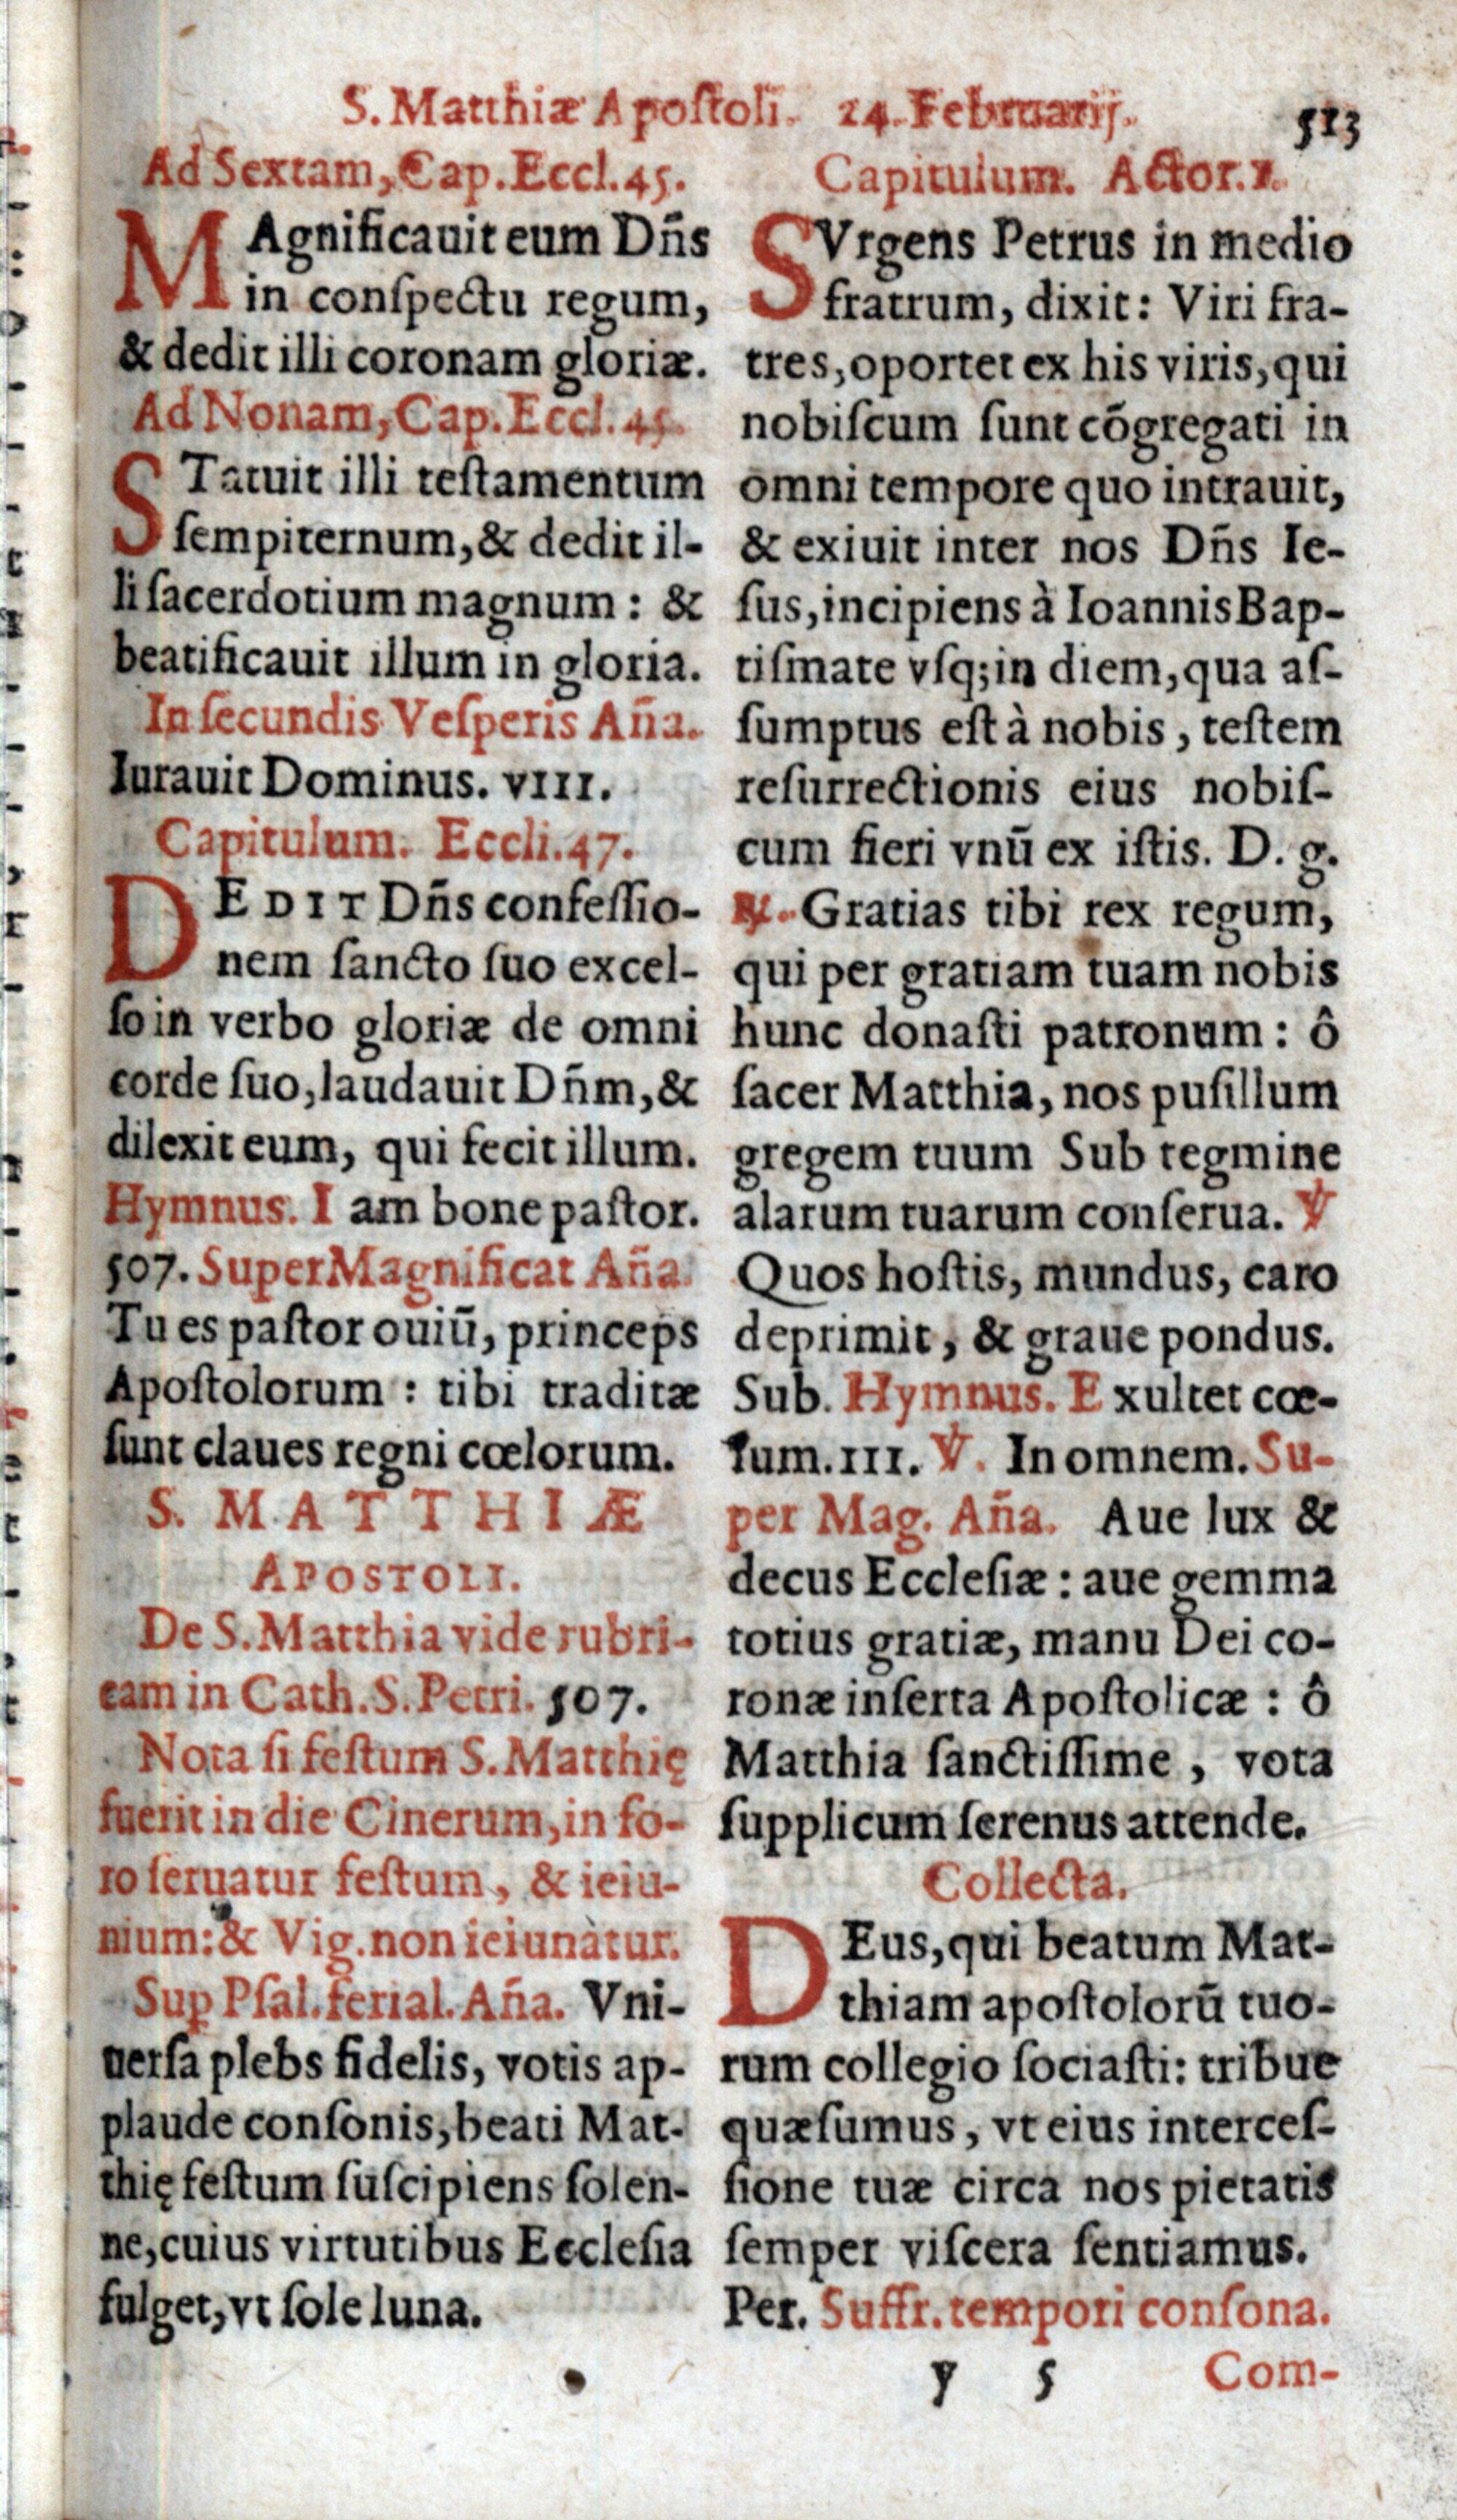 S. Matthiæ Apoſtoli. 24. Februarij. 513
Ad Sextam, Cap. Eccl. 45.
MAgnificauit eum Dñs
in conſpectu regum,
& dedit illi coronam gloriæ.
Ad Nonam, Cap. Eccl. 45.
STatuit illi teſtamentum
ſempiternum, & dedit il-
li ſacerdotium magnum: &
beatificauit illum in gloria.
In ſecundis Veſperis Aña.
Iurauit Dominus. VIII.
Capitulum. Eccli. 47.
DEDIT Dñs confeſſio-
nem ſancto ſuo excel-
ſo in verbo gloriæ de omni
corde ſuo, laudauit Dñm, &
dilexit eum, qui fecit illum.
Hymnus. Iam bone paſtor.
507. Super Magnificat Aña
Tu es paſtor ouiū, princeps
Apoſtolorum: tibi traditæ
ſunt claues regni cœlorum.
S. MATTHIÆ
APOSTOLI.
De S. Matthia vide rubri-
cam in Cath. S. Petri. 507.
Nota ſi feſtum S. Matthię
fuerit in die Cinerum, in fo-
ro ſeruatur feſtum, & ieiu-
nium: & Vig. non ieiunàtur.
Sup Pſal. ferial. Aña. Vni-
uerſa plebs fidelis, votis ap-
plaude conſonis, beati Mat-
thię feſtum ſuſcipiens ſolen-
ne, cuius virtutibus Eccleſia
fulget, vt ſole luna.
Capitulum. Actor. 1.
SVrgens Petrus in medio
fratrum, dixit: Viri fra-
tres, oportet ex his viris, qui
nobiſcum ſunt cōgregati in
omni tempore quo intrauit,
& exiuit inter nos Dñs Ie-
ſus, incipiens à Ioannis Bap-
tiſmate vſq; in diem, qua aſ-
ſumptus eſt à nobis, teſtem
reſurrectionis eius nobiſ-
cum fieri vnū ex iſtis. D. g.
℟. Gratias tibi rex regum,
qui per gratiam tuam nobis
hunc donaſti patronum: ô
ſacer Matthia, nos puſillum
gregem tuum Sub tegmine
alarum tuarum conſerua. ℣
Quos hoſtis, mundus, caro
deprimit, & graue pondus.
Sub. Hymnus. Exultet cœ-
lum. III. ℣. In omnem. Su-
per Mag. Aña. Aue lux &
decus Eccleſiæ: aue gemma
totius gratiæ, manu Dei co-
ronæ inſerta Apoſtolicæ: ô
Matthia ſanctiſſime, vota
ſupplicum ſerenus attende.
Collecta.
DEus, qui beatum Mat-
thiam apoſtolorū tuo-
rum collegio ſociaſti: tribue
quæſumus, vt eius interceſ-
ſione tuæ circa nos pietatis
ſemper viſcera ſentiamus.
Per. Suffr. tempori conſona.
y 5 Com-